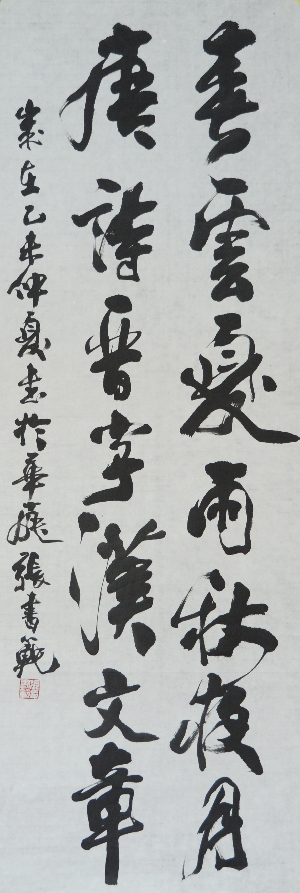 春雲夏雨秋夜月
唐詩晉字漢文章
歲在乙未仲夏書於華庭張書範